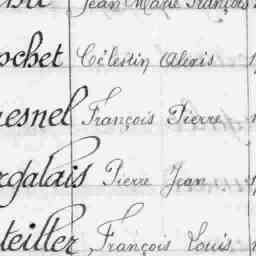 Jean Marie François
ochet Célestin Alexis
uesnel François Pierre
rgalais Pierre Jean
teiller François Louis